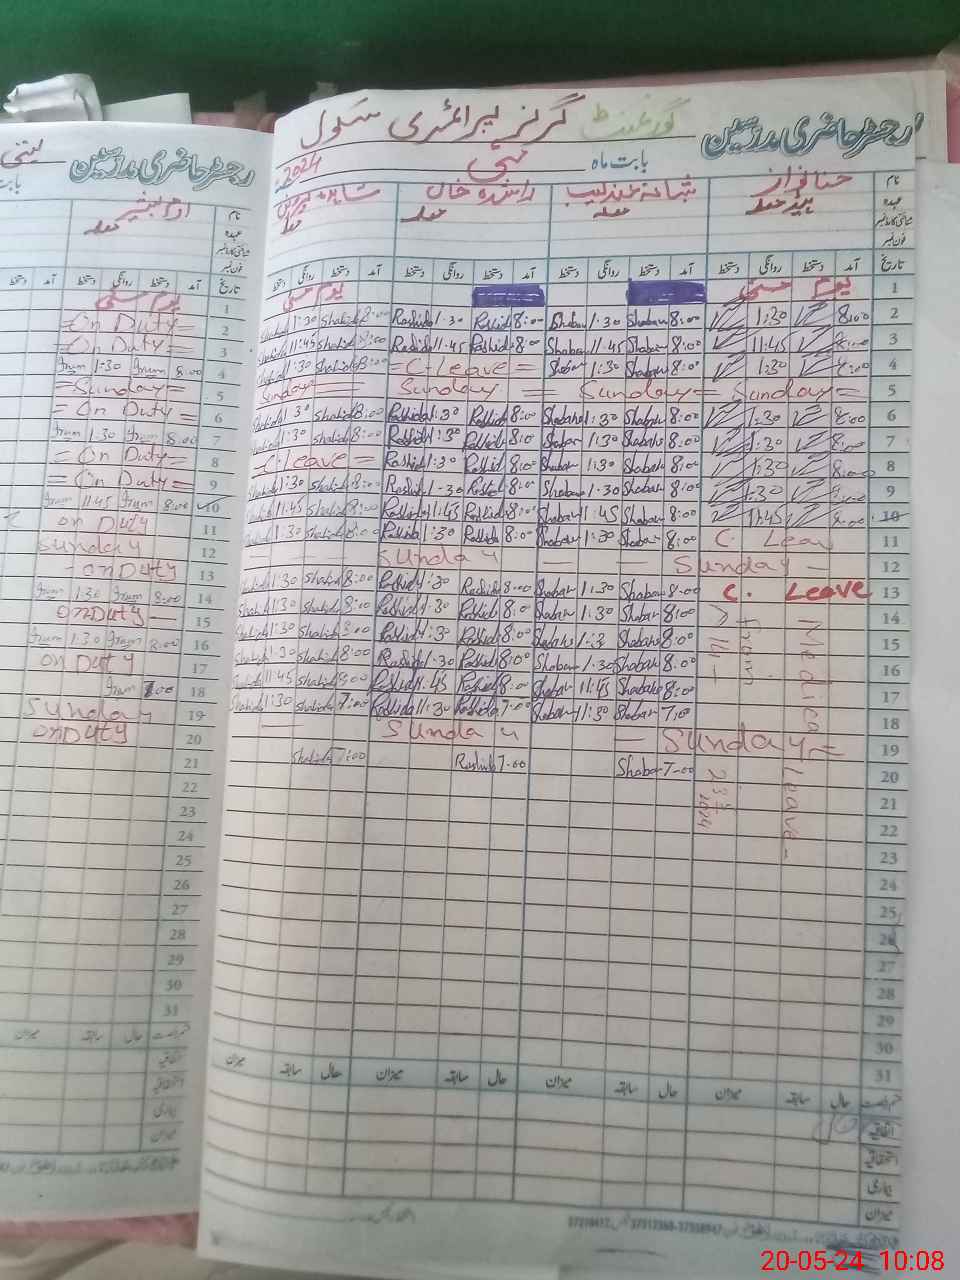 رجسٹر حاضری مدرسین گورنمنٹ گرلز پرائمری سکول
بابت ماہ مئی 2024
نام حنا نواز شبانہ عندلیب راشدہ خان
عہدہ ہیڈ معلمہ معلمہ معلمہ معلمہ
شناختی کارڈ نمبر
فون نمبر
تاریخ آمد دستخط روانگی دستخط آمد دستخط روانگی دستخط آمد دستخط روانگی دستخط آمد دستخط روانگی دستخط
1 یوم مئی یوم مئی
2 8:00 1:30 8:00 Shaban 1:30 Shaban 8:00 Rashid 1:30 Rashida 8:00 Shahid 1:30
3 8:00 11:45 8:00 Shaban 11:45 Shaban 8:00 Rashid 11:45 Rashida Shahid 11:45
4 8:00 1:30 8:00 Shaban 1:30 Shaban = C-Leave = 8:00 Shahid 1:30
5 Sunday = Sunday = Sunday Sunday
6 8:00 1:30 8:00 Shabana 1:30 Shabana 8:00 Rashid 1:30 Rashida 8:00 Shahid 1:30
7 8:00 1:30 8:00 Shabana 1:30 Shaban 8:00 Rashid 1:30 Rashida 8:00 Shahid 1:30
8 8:00 1:30 8:00 Shabana 1:30 Shaban 8:00 Rashid 1:30 Rashid - C-Leave =
9 8:00 1:30 8:00 Shaban 1:30 Shaban 8:00 Rashid 1:30 Rashida 8:00 Shahid 1:30
10 8:00 11:45 8:00 Shaban 11:45 Shaban 8:00 Rashid 11:45 Rashid 8:00 Shahid 11:45
11 C. Leav 8:00 Shaban 1:30 Shaban 8:00 Rashid 1:30 Rashida 8:00 Shahid 1:30
12 Sunday Sunday
13 C. Leave 8:00 Shaban 1:30 Shaban 8:00 Rashida 1:30 Rashid 8:00 Shahid 1:30
14 8:00 Shaban 1:30 Shaban 8:00 Rashid 1:30 Rashid 8:00 Shahid 1:30
15 8:00 Shabana 1:3 Shabana 8:00 Rashid 1:30 Rashid 8:00 Shahid 1:30
16 8:00 Shaban 1:30 Shaban 8:00 Rashid 1:30 Rashid 8:00 Shahid 1:30
17 8:00 Shabana 11:45 Shaban 8:00 Rashid 11:45 Rashid 8:00 Shahid 11:45
18 7:00 Shaban 11:30 Shaban 7:00 Rashida 11:30 Rashida 7:00 Shahid 11:30
19 Sunday = Sunday
20 7:00 Shaban 7:00 Rashid 7:00 Shahid
21
22
23
24
25
26
27
28
29
30
31
Medical Leave
from 14
23 5 2024
حال سابقہ میزان حال سابقہ میزان حال سابقہ میزان
اتفاقیہ
استحقاقیہ
بیماری
میزان
رجسٹر حاضری مدرسین
بابت
نام ارم بشیر
عہدہ معلمہ
شناختی کارڈ نمبر
فون نمبر
تاریخ آمد دستخط روانگی دستخط
1 یوم مئی
2 =On Duty=
3 =On Duty=
4 8:00 Irum 1:30 Irum
5 =Sunday=
6 = On Duty=
7 8:00 Irum 1:30 Irum
8 = On Duty=
9 = On Duty=
10 8:00 Irum 11:45 Irum
11 on Duty
12 Sunday
13 - on Duty
14 8:00 Irum 1:30 Irum
15 on Duty
16 8:00 Irum 1:30 Irum
17 on Duty
18 7:00 Irum
19 Sunday
20 on Duty
21
22
23
24
25
26
27
28
29
30
31
حال سابقہ میزان
اتفاقیہ
استحقاقیہ
بیماری
میزان
20-05-24 10:08